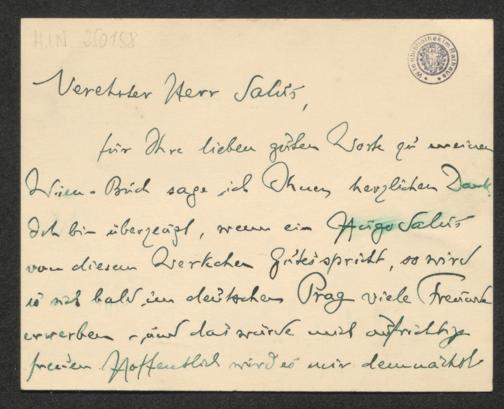 H.I.N. 250158
Wienbibliothek im Rathaus
Verehrter Herr Salus,
für Ihre lieben guten Worte zu meinem
Wien-Buch sage ich Ihnen herzlichen Dank.
Ich bin überzeugt, wenn ein Hugo Salus
von diesem Werkchen Gutes spricht, so wird
es sich bald im deutschen Prag viele Freunde
erwerben - und das würde mich aufrichtig
freuen. Hoffentlich wird es mir demnächst